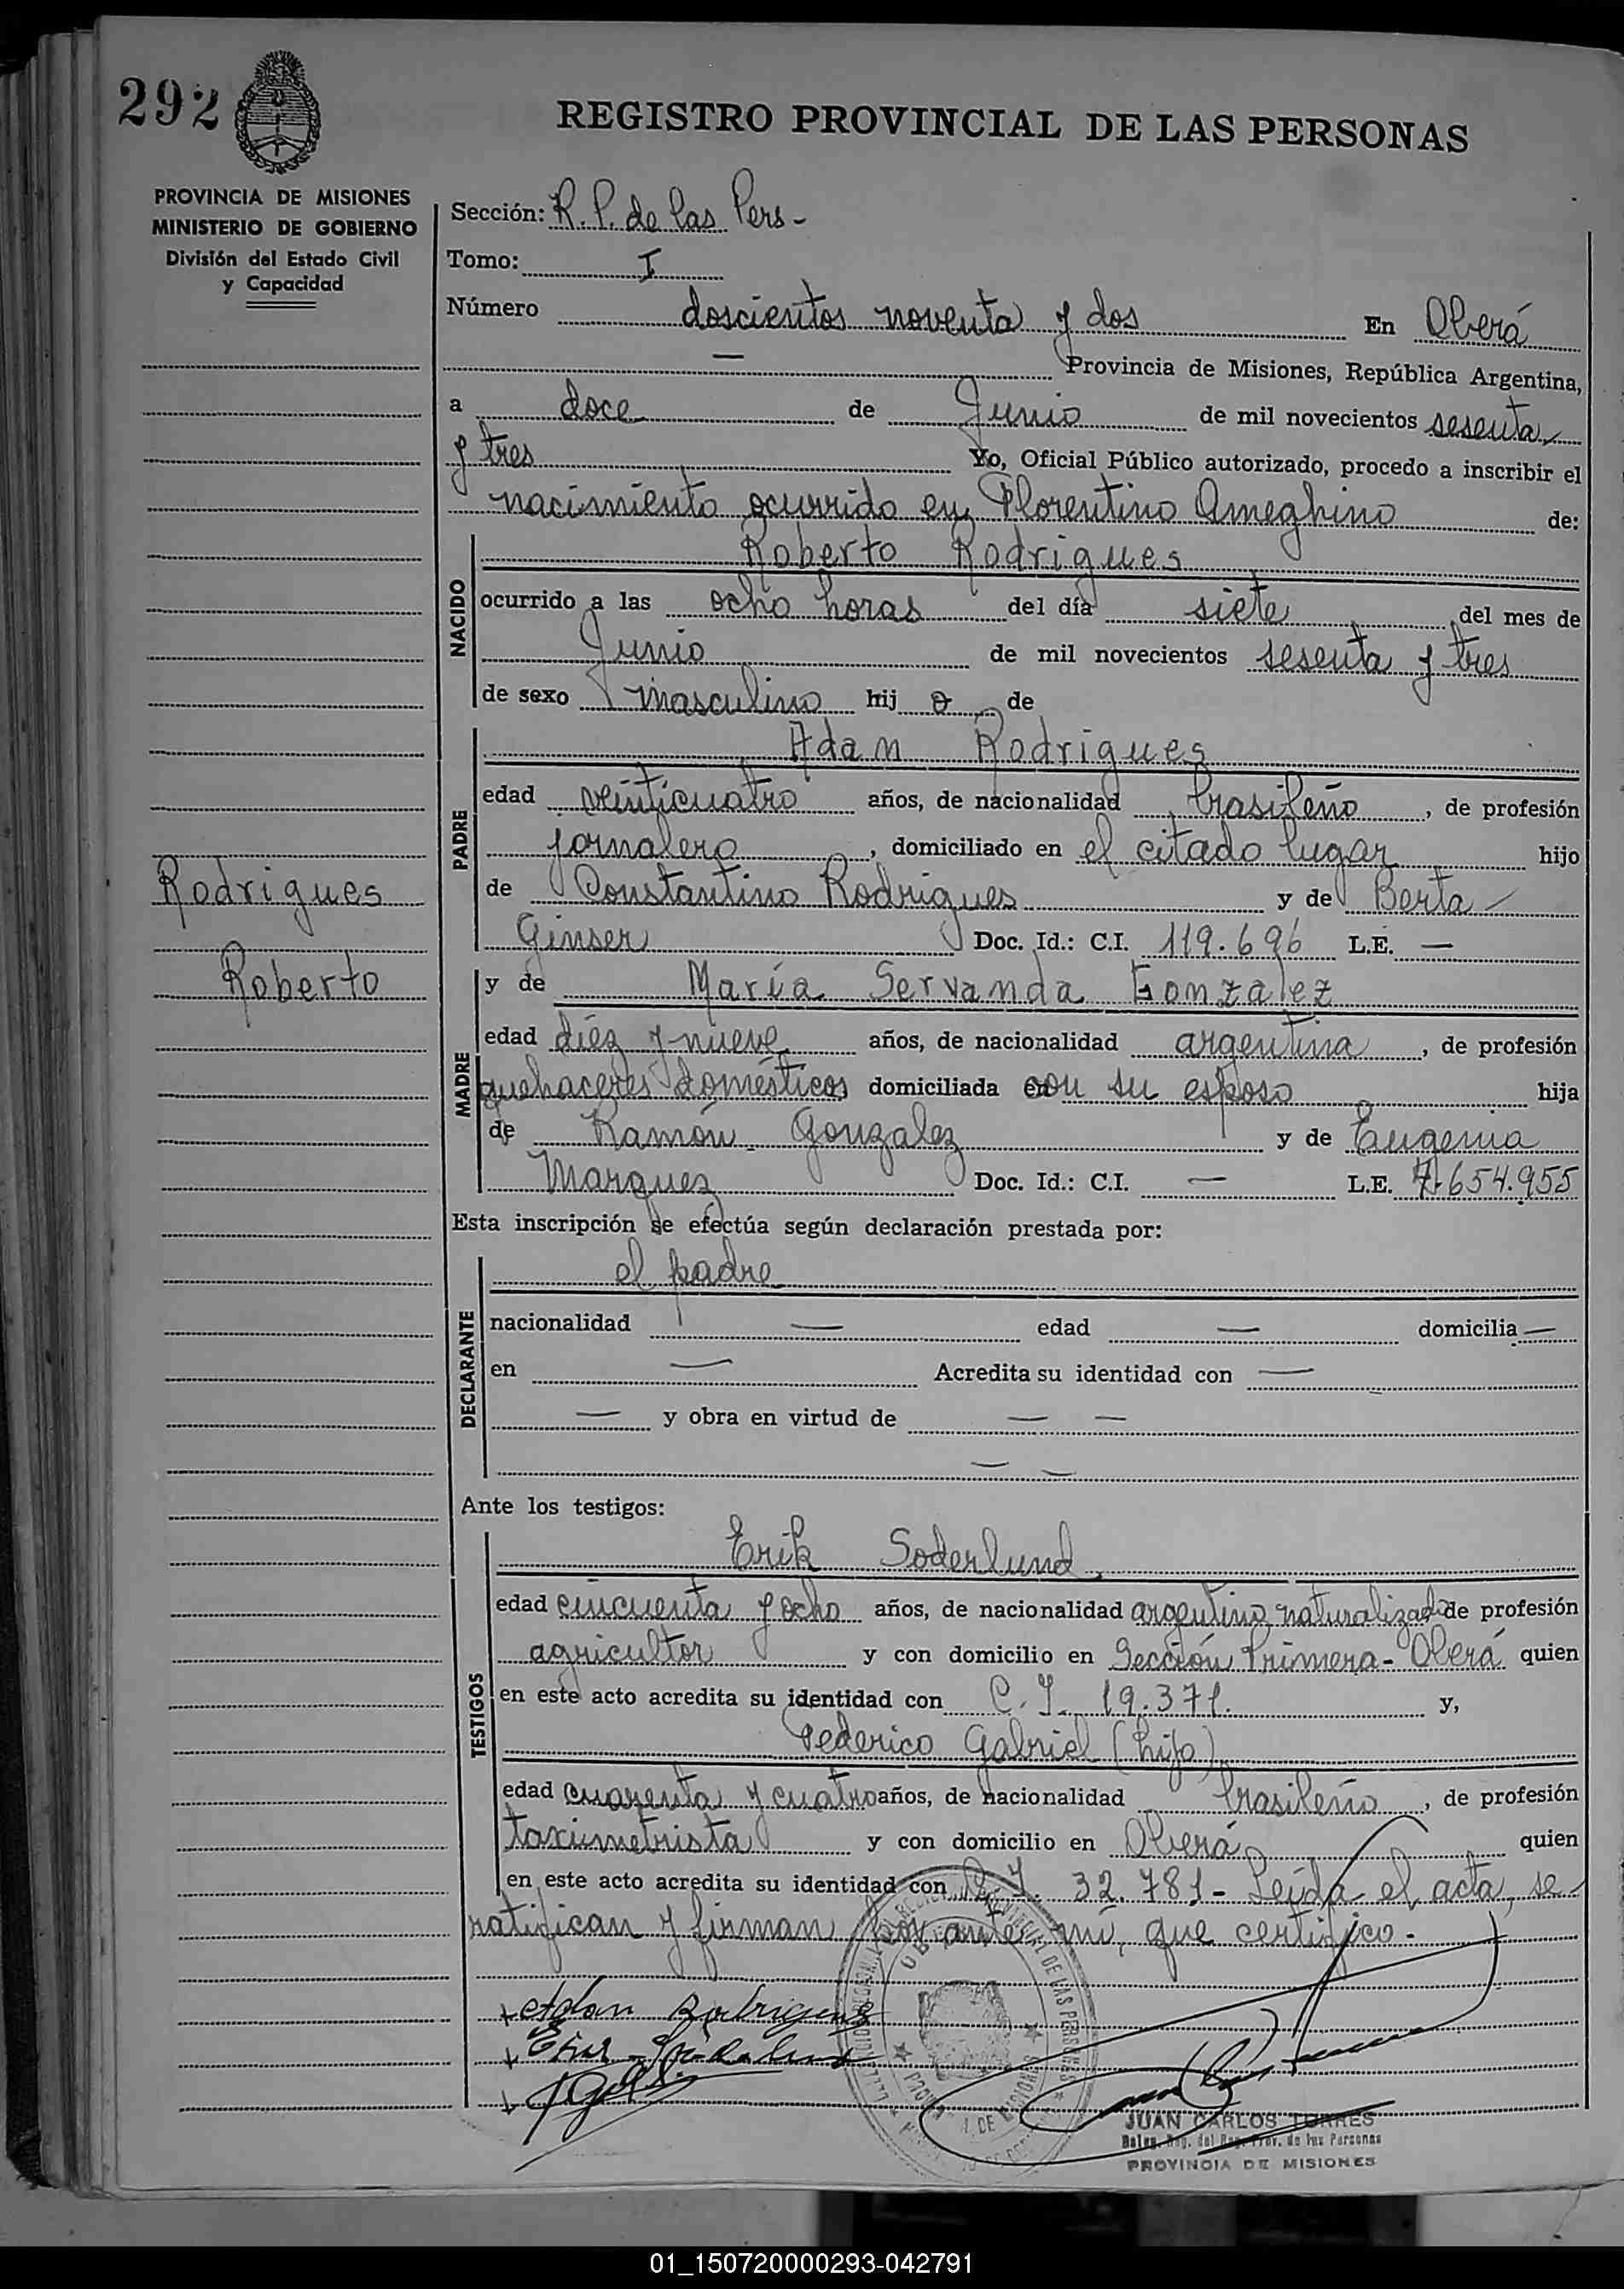 292
REGISTRO PROVINCIAL DE LAS PERSONAS
PROVINCIA DE MISIONES
MINISTERIO DE GOBIERNO
División del Estado Civil
y Capacidad
Sección: R. P. de las Pers-
Tomo: I
Número doscientos noventa y dos En Oberá
— Provincia de Misiones, República Argentina,
a doce de Junio de mil novecientos sesenta
y tres Yo, Oficial Público autorizado, procedo a inscribir el
nacimiento ocurrido en Florentino Ameghino de:
NACIDO
Roberto Rodrigues
ocurrido a las ocho horas del día siete del mes de
Junio de mil novecientos sesenta y tres
de sexo masculino hij o de
PADRE
Adam Rodrigues
edad veinticuatro años, de nacionalidad brasileño, de profesión
jornalero, domiciliado en el citado lugar hijo
de Constantino Rodrigues y de Berta
Ginser Doc. Id.: C.I. 119.696 L.E. —
Rodrigues
Roberto
MADRE
y de María Servanda Gonzalez
edad diez y nueve años, de nacionalidad argentina, de profesión
quehaceres domésticos domiciliada con su esposo hija
de Ramón Gonzalez y de Eugenia
Marquez Doc. Id.: C.I. — L.E. 7.654.955
Esta inscripción se efectúa según declaración prestada por:
DECLARANTE
el padre
nacionalidad — edad — domicilia —
en — Acredita su identidad con —
— y obra en virtud de — —
— —
Ante los testigos:
TESTIGOS
Erik Soderlund
edad cincuenta y ocho años, de nacionalidad argentino naturalizado de profesión
agricultor y con domicilio en Sección Primera - Oberá quien
en este acto acredita su identidad con C. I. 19.371. y,
Federico Gabriel (hijo)
edad cuarenta y cuatro años, de nacionalidad brasileño, de profesión
taximetrista y con domicilio en Oberá quien
en este acto acredita su identidad con C. I. 32.781 - Leída el acta, se
ratifican y firman por ante mí, que certifico.-
+ Adan Rodrigues
JUAN CARLOS TORRES
Deleg. Reg. del Reg. Prov. de las Personas
PROVINCIA DE MISIONES
01_150720000293-042791